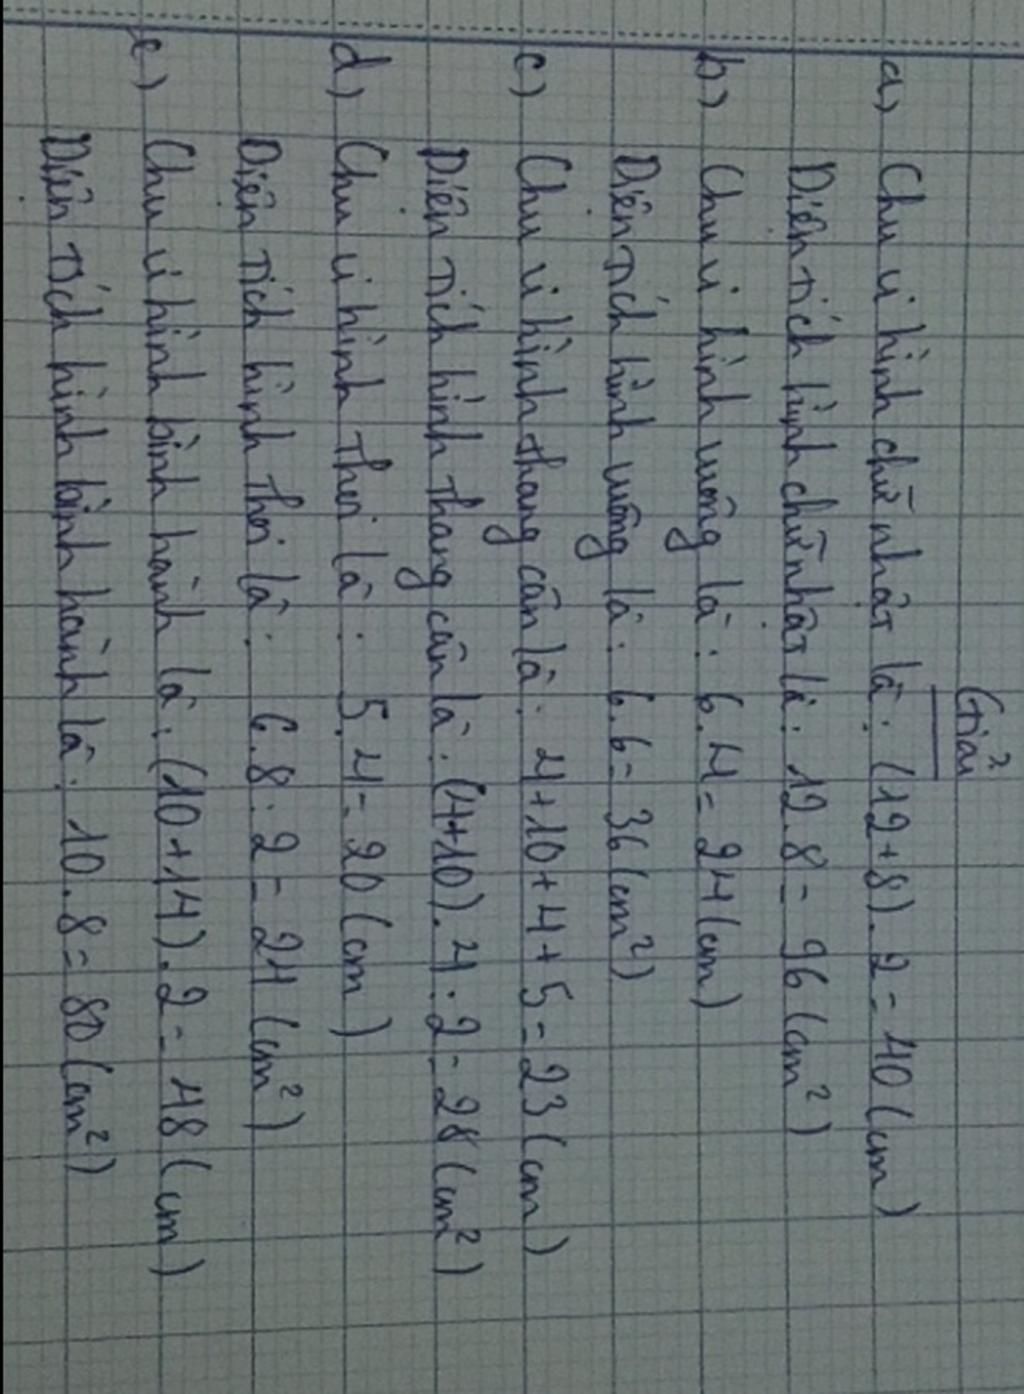 Giải
a) Chu vi hình chữ nhật là: (12+8).2=40(cm)
Diện tích hình chữ nhật là: 12.8=96(cm²)
b) Chu vi hình vuông là: 6.4=24(cm)
Diện tích hình vuông là: 6.6=36(cm²)
c) Chu vi hình thang cân là: 4+10+4+5=23(cm)
Diện tích hình thang cân là: (4+10).4:2=28(cm²)
d) Chu vi hình thoi là: 5.4=20(cm)
Diện tích hình thoi là: 6.8:2=24(cm²)
e) Chu vi hình bình hành là: (10+14).2=48(cm)
Diện tích hình bình hành là: 10.8=80(cm²)